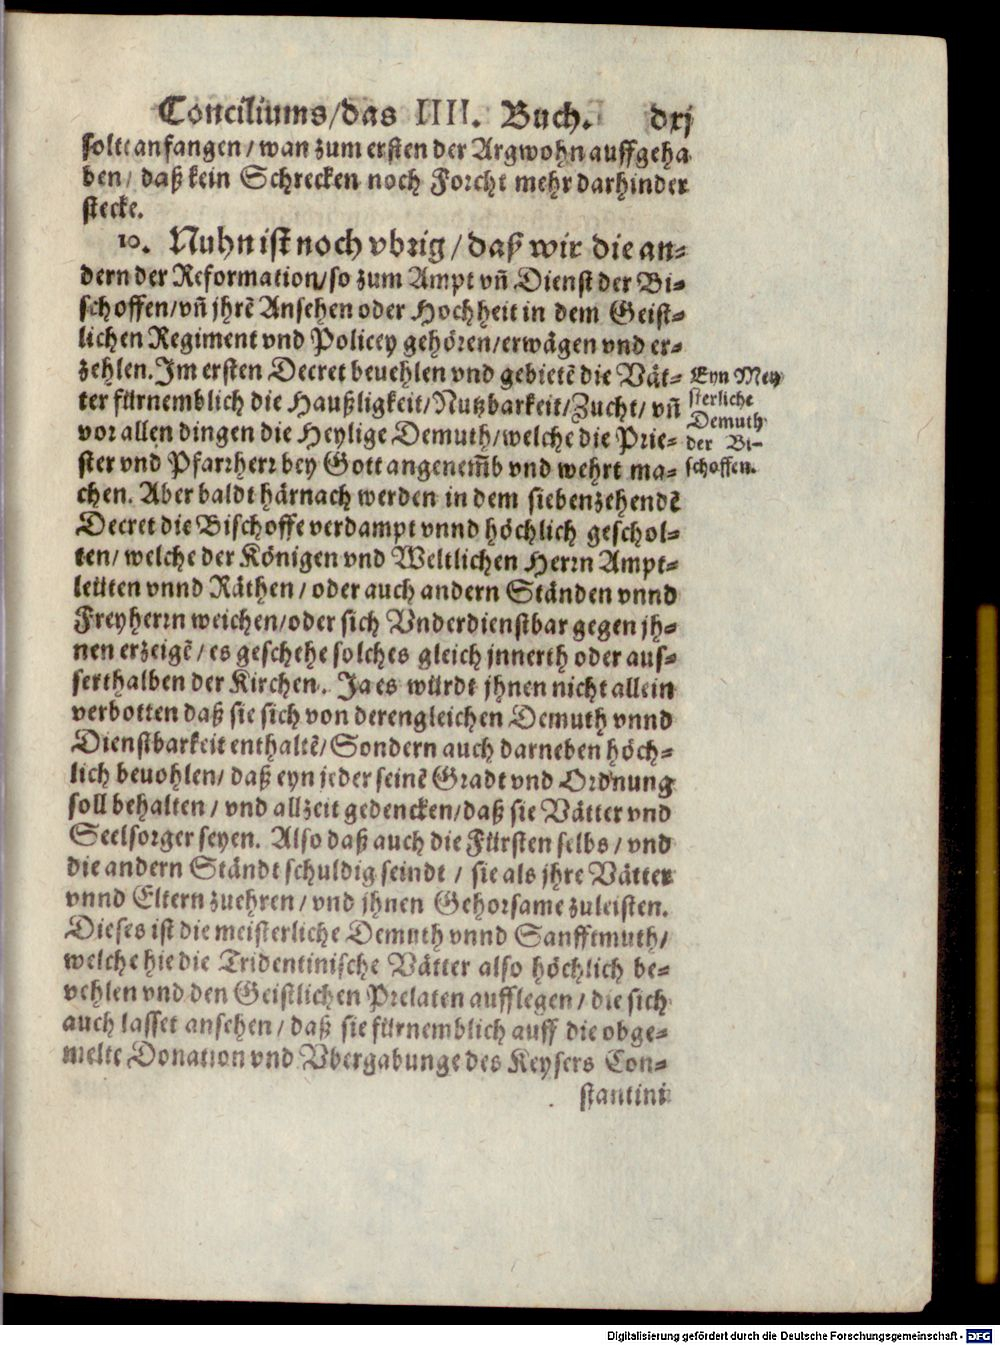 Conciliums/das IIII. Buch. dxj
solte anfangen/ wan zum ersten der Argwohn auffgeha
ben/ daß kein Schrecken noch Forcht mehr darhinder
stecke.
10. Nuhn ist noch vbrig/ daß wir die an-
dern der Reformation/ so zum Ampt vñ Dienst der Bi-
schoffen/ vñ jhrẽ Ansehen oder Hochheit in dem Geist-
lichen Regiment vnd Policey gehören/ erwägen vnd er-
zehlen. Im ersten Decret beuehlen vnd gebietẽ die Vät-
ter fürnemblich die Haußligkeit/ Nutzbarkeit/ Zucht/ vñ
vor allen dingen die Heylige Demuth/ welche die Prie-
ster vnd Pfarrherr bey Gott angenem̃b vnd wehrt ma-
chen. Aber baldt härnach werden in dem siebenzehendẽ
Decret die Bischoffe verdampt vnnd höchlich geschol-
ten/ welche der Königen vnd Weltlichen Herrn Ampt-
leüten vnnd Räthen/ oder auch andern Ständen vnnd
Freyherrn weichen/ oder sich Vnderdienstbar gegen jh-
nen erzeigẽ/ es geschehe solches gleich jnnerth oder aus-
serthalben der Kirchen. Ja es würdt jhnen nicht allein
verbotten daß sie sich von derengleichen Demuth vnnd
Dienstbarkeit enthaltẽ/ Sondern auch darneben höch-
lich beuohlen/ daß eyn jeder seinẽ Gradt vnd Ordnung
soll behalten/ vnd allzeit gedencken/ daß sie Vätter vnd
Seelsorger seyen. Also daß auch die Fürsten selbs/ vnd
die andern Ständt schuldig seindt/ sie als jhre Vätter
vnnd Eltern zuehren/ vnd jhnen Gehorsame zuleisten.
Dieses ist die meisterliche Demuth vnnd Sanfftmuth/
welche hie die Tridentinische Vätter also höchlich be-
vehlen vnd den Geistlichen Prelaten aufflegen/ die sich
auch lasset ansehen/ daß sie fürnemblich auff die obge-
melte Donation vnd Vbergabunge des Keysers Con-
stantini
Eyn Mey
sterliche
Demuth
der Bi-
schoffen.
Digitalisierung gefördert durch die Deutsche Forschungsgemeinschaft - DFG